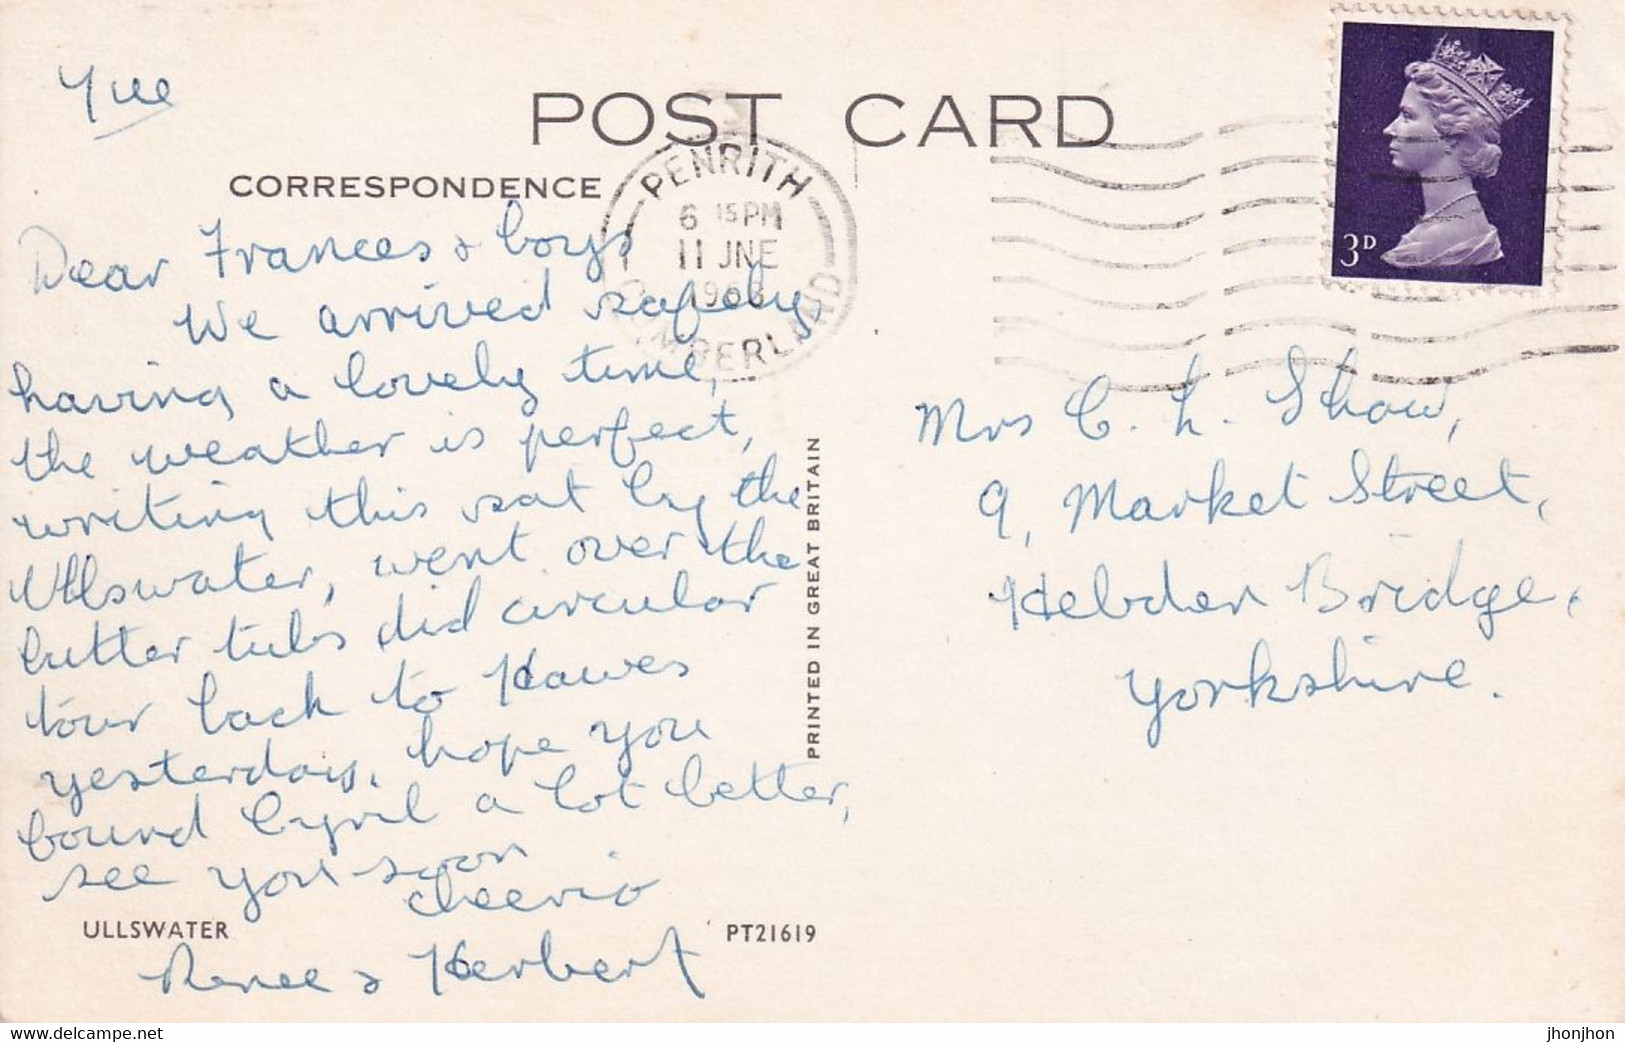 Tue
POST CARD
CORRESPONDENCE
PENRITH
6 15 PM
11 JNE
1968
CUMBERLAND
3D
Dear Frances & boys
We arrived safely,
having a lovely time,
the weather is perfect,
writing this sat by the
Ullswater, went over the
butter tubs did circular
tour back to Hawes
yesterday, hope you
bound Cyril a lot better,
see you soon
cheerio
Renee & Herbert
ULLSWATER
PT21619
PRINTED IN GREAT BRITAIN
Mrs C. L. Shaw,
9, Market Street,
Hebden Bridge,
Yorkshire.
www.delcampe.net
jhonjhon